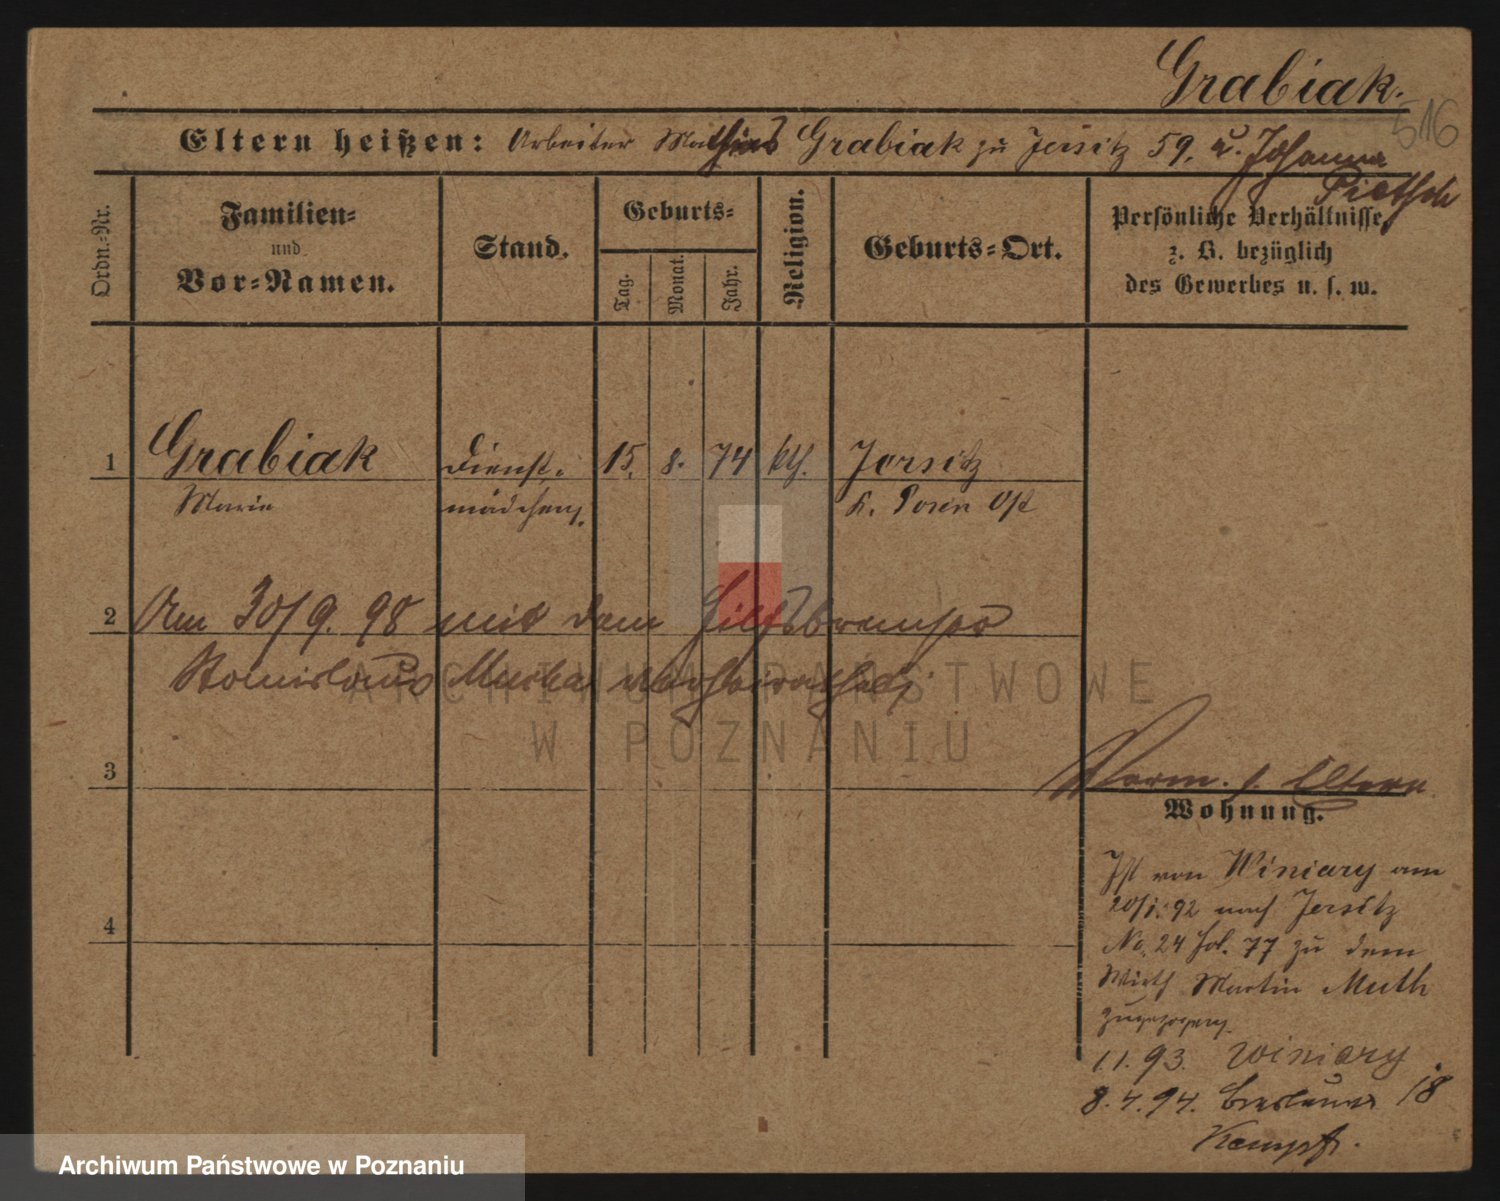 Grabiak.
516
Eltern heißen: Arbeiter Mathias Grabiak zu Jersitz 59, u. Johanna
Pietsch
Ordn.-Nr.
Familien-
und
Vor-Namen.
Stand.
Geburts-
Tag.
Monat.
Jahr.
Religion.
Geburts-Ort.
Persönliche Verhältnisse,
z. B. bezüglich
des Gewerbes u. s. w.
1 Grabiak Dienst- 15. 8. 74 kth. Jersitz
Marie mädchen. K. Posen Ost
2 Am 30/9. 98 mit dem Hilfsbremser
Stanislaus verheirathet
ARCHIWUM PAŃSTWOWE
W POZNANIU
3
Verm. s. Eltern.
Wohnung.
Ist von Winiary am
20/1. 92 nach Jersitz
No. 24 Fol. 77 zu dem
Wirth Martin Muth
zugezogen.
1.1.93. Winiary
8.4.94. Breslauer 18
Kempf.
4
Archiwum Państwowe w Poznaniu